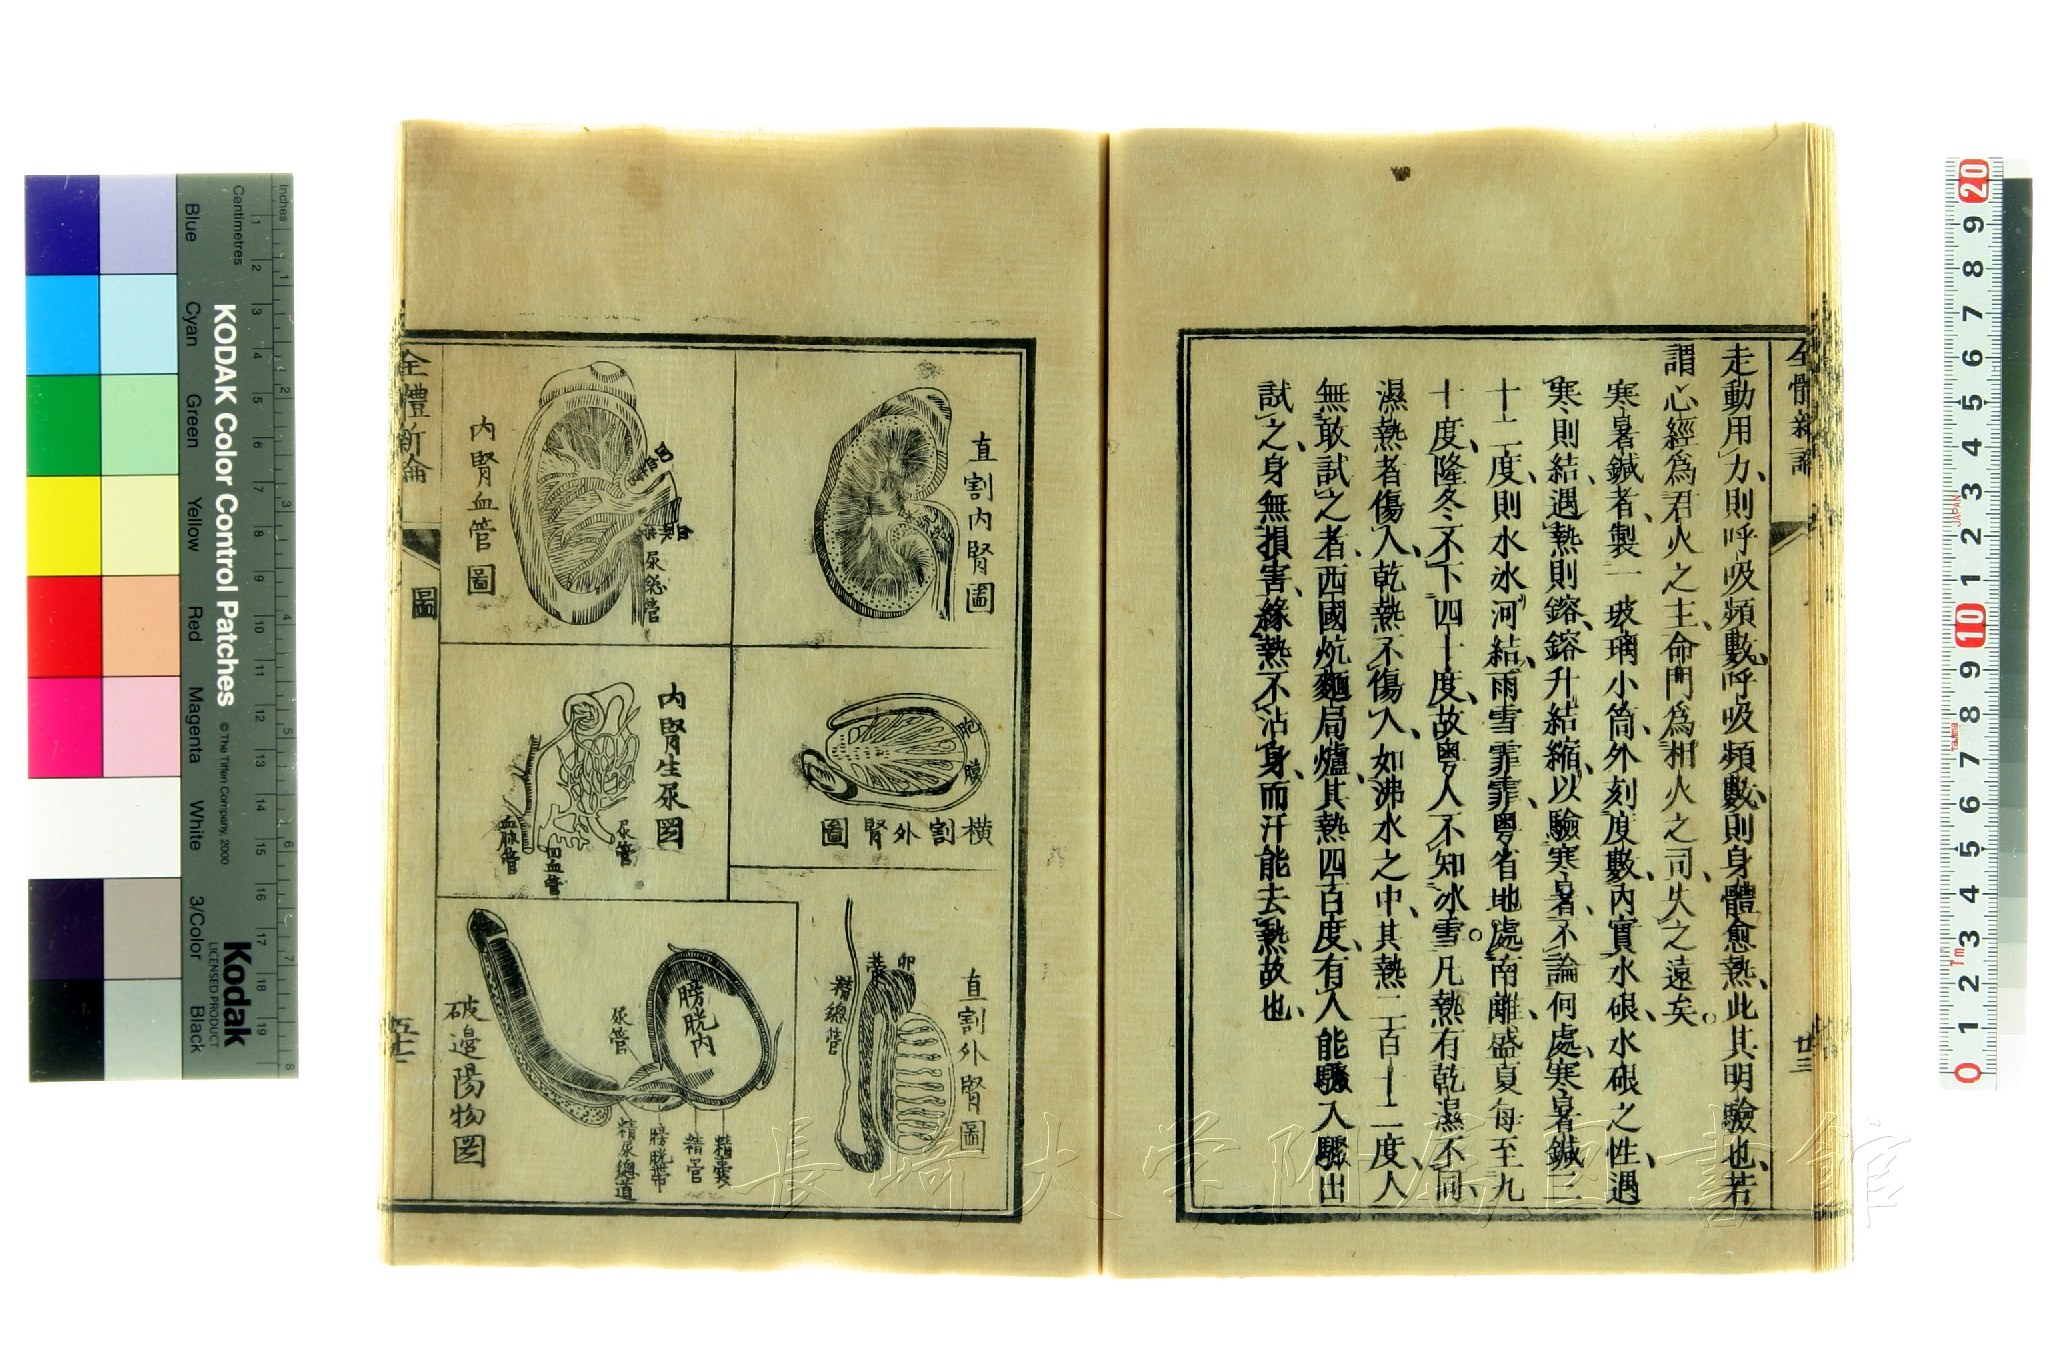 全體新論
走動用力、則呼吸頻數、呼吸頻數、則身體愈熱、此其明驗也、若
謂心經為君火之主、命門為相火之司、失之遠矣。
寒暑鍼者、製一玻璃小筒、外刻度數、內實水硍、水硍之性、遇
寒則結、遇熱則鎔、鎔升結縮、以驗寒暑、不論何處、寒暑鍼三
十二度、則水冰河結、雨雪霏霏、粵省地處南離、盛夏每至九
十度、隆冬不下四十度、故粵人不知冰雪。凡熱有乾濕不同、
濕熱者傷人、乾熱不傷人、如沸水之中、其熱二百一十二度、人
無敢試之者、西國炕麵局爐、其熱四百度、有人能驟入驟出
試之、身無損害、緣熱不沾身、而汗能去熱故也、
廿三
直割內腎圖
橫割外腎圖
胞膜
直割外腎圖
卵蒂
精總管
內腎血管圖
回血管
血脈管
尿總管
內腎生尿圖
尿管
回血管
血脈管
破邊陽物圖
膀胱內
尿管
精尿總道
膀胱蒂
精管
精囊
全體新論
圖
長崎大学附属図書館
KODAK Color Control Patches
© The Tiffen Company, 2000
Kodak
LICENSED PRODUCT
Inches
Centimetres
Blue
Cyan
Green
Yellow
Red
Magenta
White
3/Color
Black
1 2 3 4 5 6 7 8 9 10 11 12 13 14 15 16 17 18 19
1 2 3 4 5 6 7 8
20 9 8 7 6 5 4 3 2 1 10 9 8 7 6 5 4 3 2 1 0
JAPAN
TAJIMA